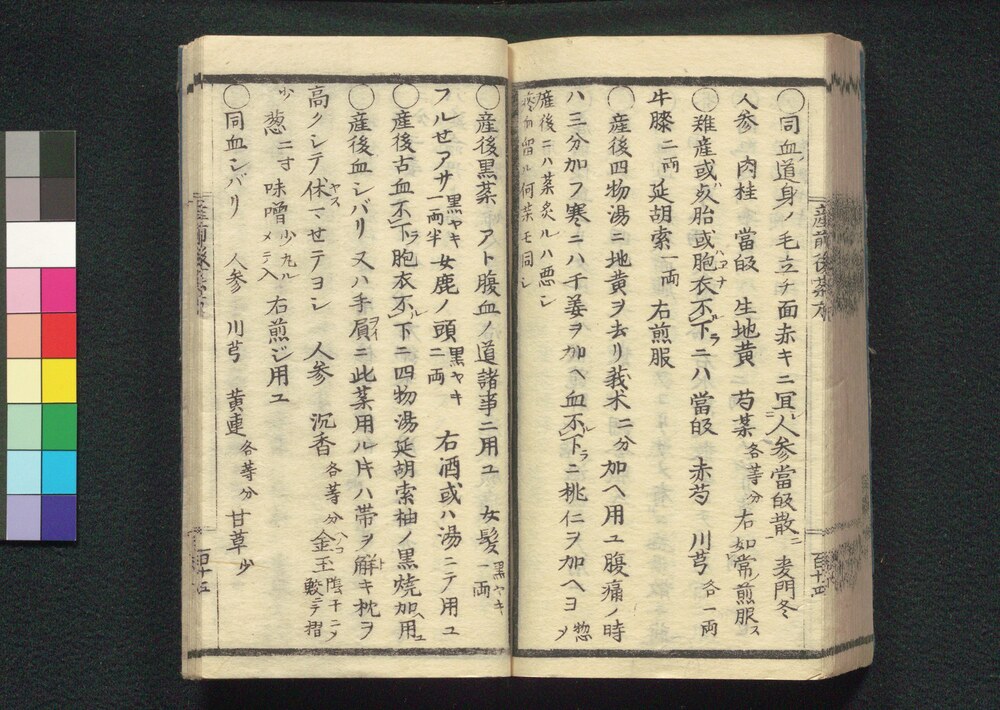 ○同血道身ノ毛立チ面赤キニ冝人参當皈散ニ麦門冬
人参 肉桂 當皈 生地黄 芍薬各等分右如常煎服ス
○難産或ハ死胎或胞衣不下ニハ當皈 赤芍 川芎各一両
牛膝二両 延胡索一両 右煎服
○産後四物湯ニ地黄ヲ去リ莪朮二分加ヘ用ユ腹痛ノ時
ハ三分加フ寒ニハ干姜ヲ加ヘ血不下ニ桃仁ヲ加ヘヨ惣メ
産後ニハ薬炙ルハ悪シ
瘀血留ル何薬モ同シ
○産後黒薬 アト腹血ノ道諸事ニ用ユ 女髪一両黒ヤキ
フルせアサ一両半黒ヤキ女鹿ノ頭二両黒ヤキ 右酒或ハ湯ニテ用ユ
○産後古血不下胞衣不下ニ四物湯延胡索柚ノ黒焼加用ユ
○産後血シバリ又ハ手屓ニ此薬用ル片ハ帯ヲ解キ枕ヲ
高クシテ休マせテヨシ 人参 沉香各等分金玉陰干ニメ鮫ニテ摺
少 葱二寸 味噌少丸メテ入ル 右煎ジ用ユ
○同血シバリ 人参 川芎 黄連各等分甘草少
産前後薬方
百十四
百十五